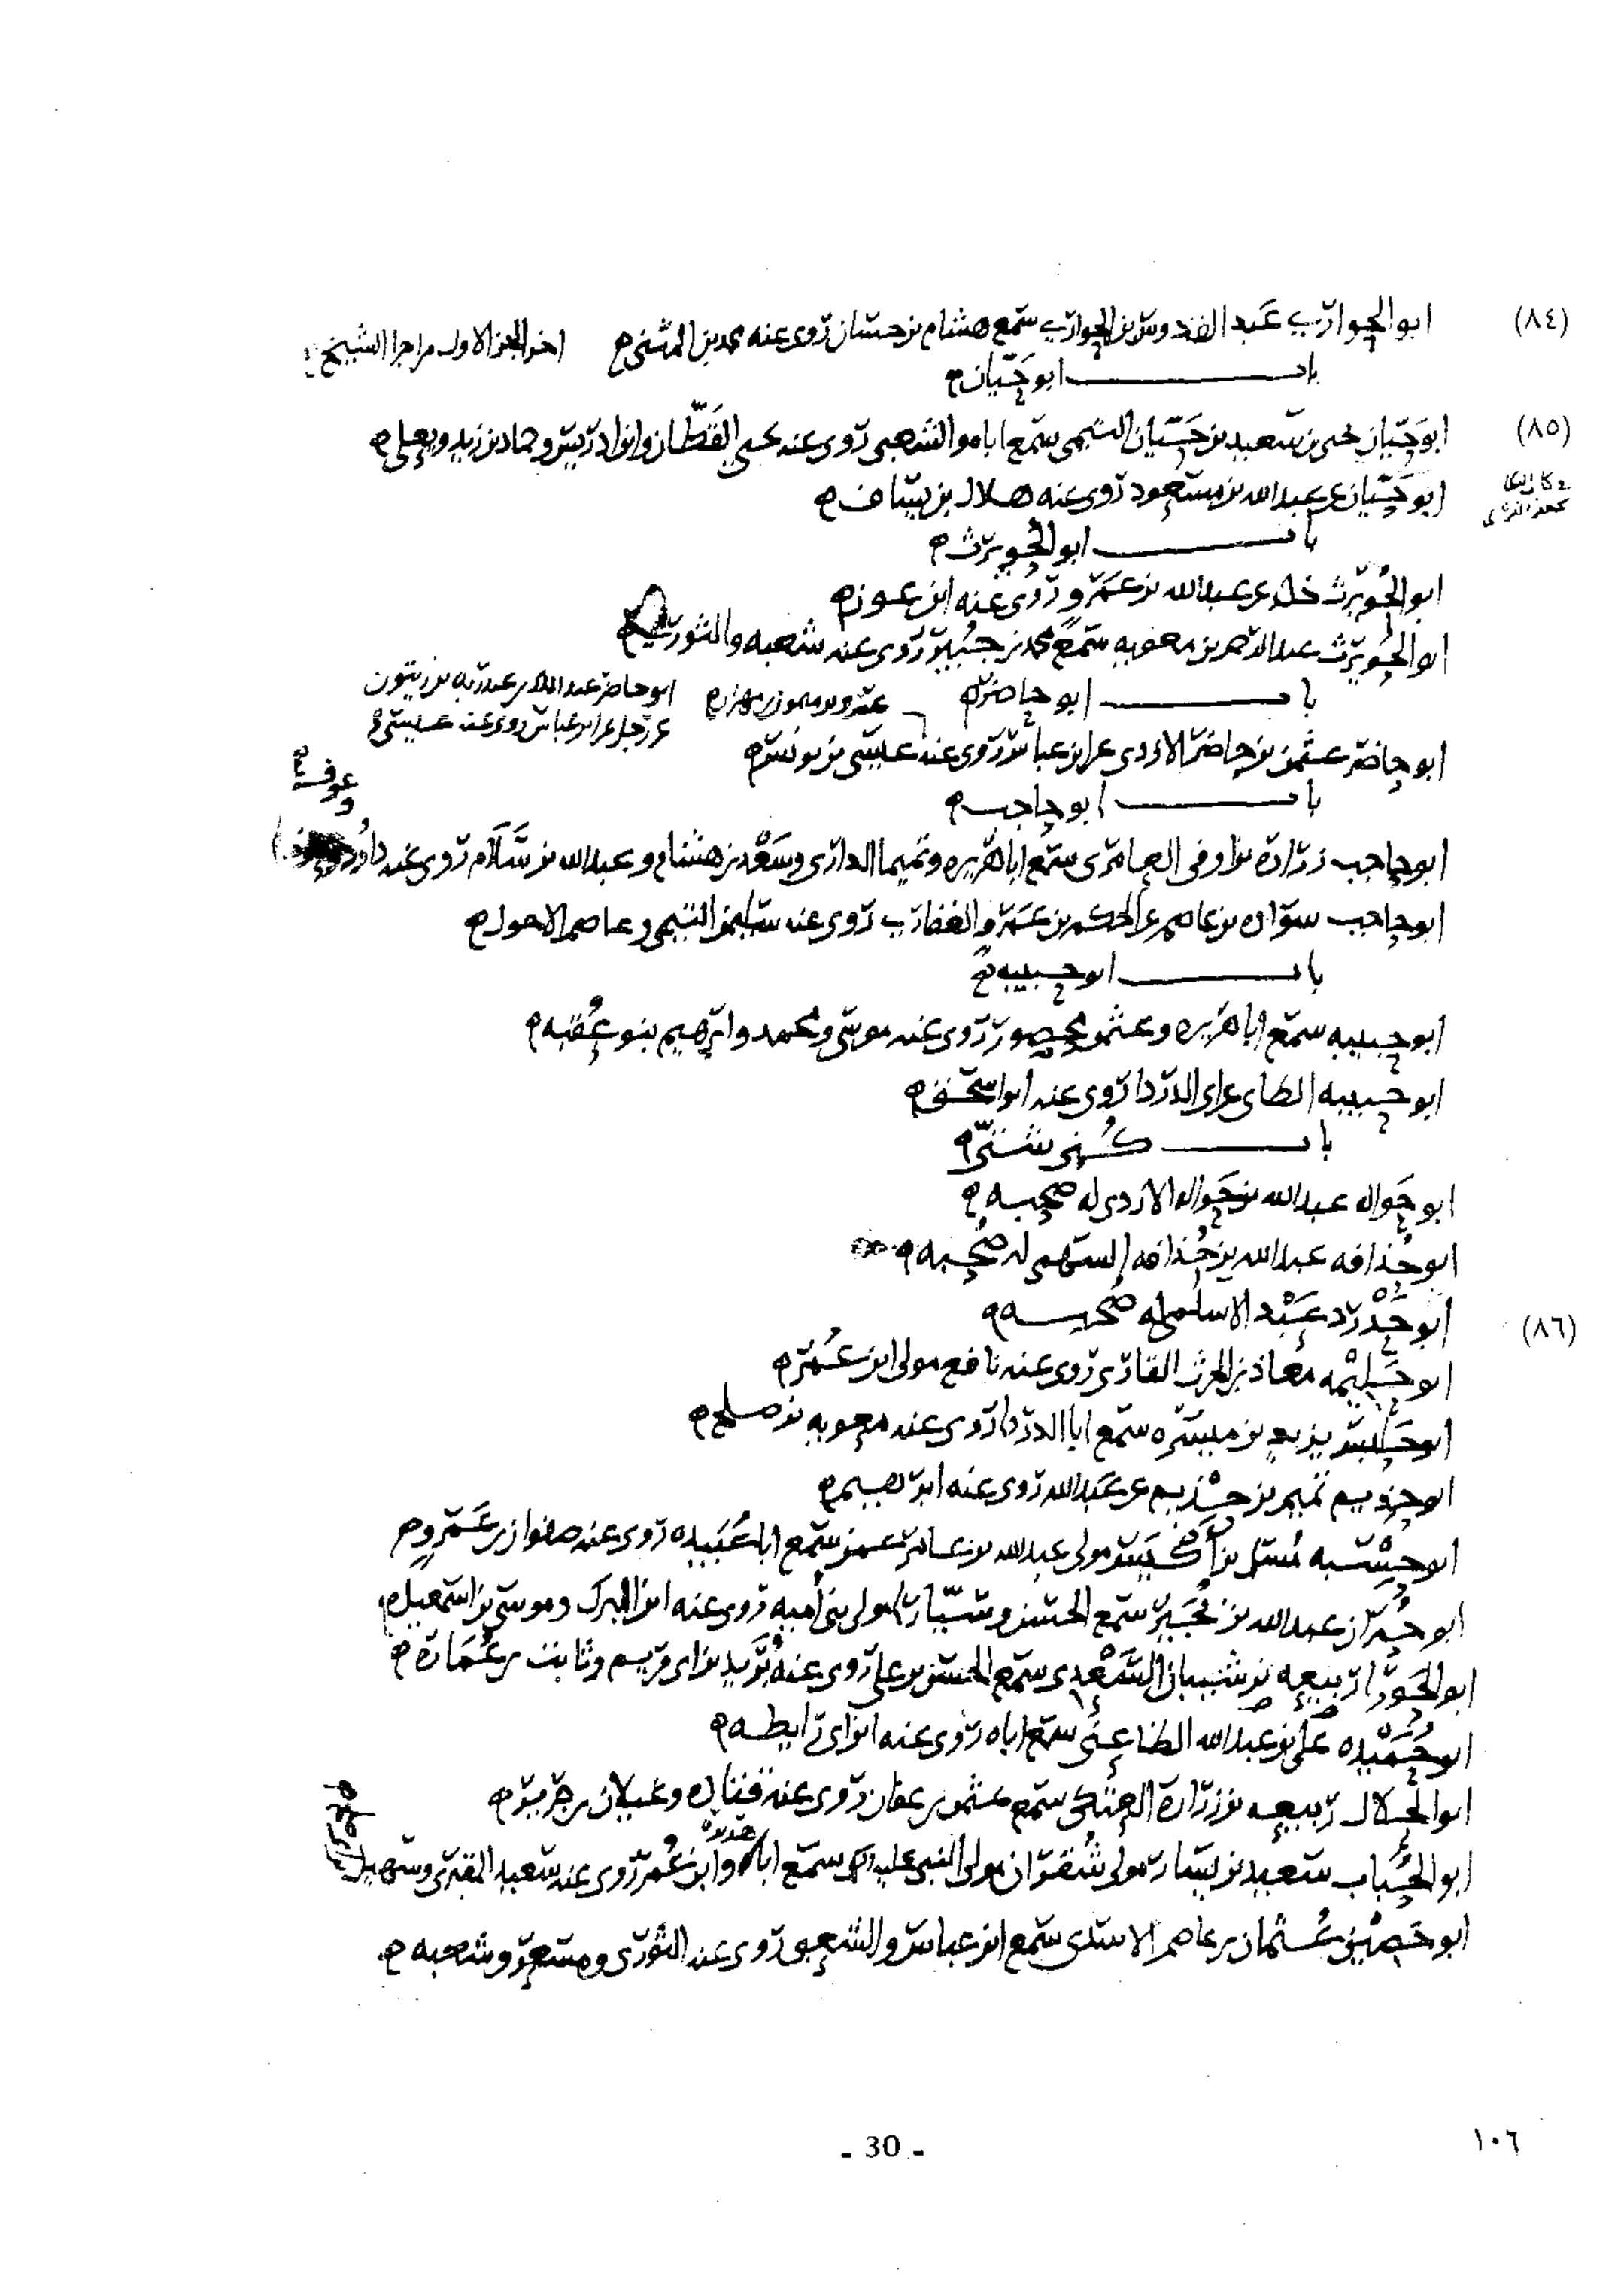 (٨٤) ابو الجوارب عبد القدوس بن الجوارب سمع هشام بن حسان روى عنه محمد بن المثنى اخر الجز الاول من اجزا الشيخ
باب ابو حيان
(٨٥) ابو حيان يحيى بن سعيد بن حيان التيمى سمع اباه والشعبى روى عنه يحيى القطان وابن ادريس وحماد بن زيد ويعلى
ابو حيان عن عبد الله بن مسعود روى عنه هلال بن يساف
باب ابو الحويرث
ابو الحويرث عن عبد الله بن عمرو روى عنه ابن عون
ابو الحويرث عبد الرحمن بن معويه سمع محمد بن جبير روى عنه شعبه والثورى
باب ابو حاضر
ابو حاضر عبد الملك بن عبد ربه بن زيتون
عن رجل عن ابن عباس روى عنه عيسى
ابو حاضر عثمن بن حاضر الازدى عن ابن عباس روى عنه عيسى بن يونس
وعوف
باب ابو حاجب
ابو حاجب زراره بن اوفى العامرى سمع اباهريره وتميما الدارى وسعد بن هشام وعبد الله بن سلام روى عنه داود
ابو حاجب سواده بن عاصم عن الحكم بن عمرو الغفارى روى عنه سليمن التيمى وعاصم الاحول
باب ابو حبيبه
ابو حبيبه سمع اباهريره وعثمن محصور روى عنه موسى ومحمد وابرهيم بنو عقبه
ابو حبيبه الطاى عن ابى الدردا روى عنه ابو اسحق
باب كنى شتى
ابو حواله عبد الله بن حواله الازدى له صحبه
ابو حذافه عبد الله بن حذافه السهمى له صحبه
(٨٦) ابو حدرد عبد الاسلمى له صحبه
ابو حليمه معاذ بن الحرث القارى روى عنه نافع مولى ابن عمر
ابو حلبس يزيد بن ميسره سمع ام الدردا روى عنه معويه بن صلح
ابو حذيم تميم بن حذيم عن عبد الله روى عنه
ابو حسبه مسلم بن اكيس مولى عبد الله بن عامر سمع اباعبيده روى عنه صفوان بن عمرو
ابو حمران عبد الله بن مجبر سمع الحسن وسيارا مولى بنى اميه روى عنه ابن المبرك وموسى بن اسمعيل
ابو الحورا ربيعه بن شيبان السعدى سمع الحسن بن على روى عنه بريد بن ابى مريم وثابت بن عماره
ابو حميده على بن عبد الله الطاعنى سمع اباه روى عنه ابن ابى رايطه
ابو الحلال ربيعه بن زراره العتكى سمع عثمن بن عفان روى عنه قتاده وغيلان بن جرير
ابو الحباب سعيد بن يسار مولى شقران مولى النبى عليه السلم سمع اباهريره وابن عمر روى عنه سعيد المقبرى وسهيل
ابو حصين عثمان بن عاصم الاسدى سمع ابن عباس والشعبى روى عنه الثورى ومسعر وشعبه
١٠٦
- 30 -